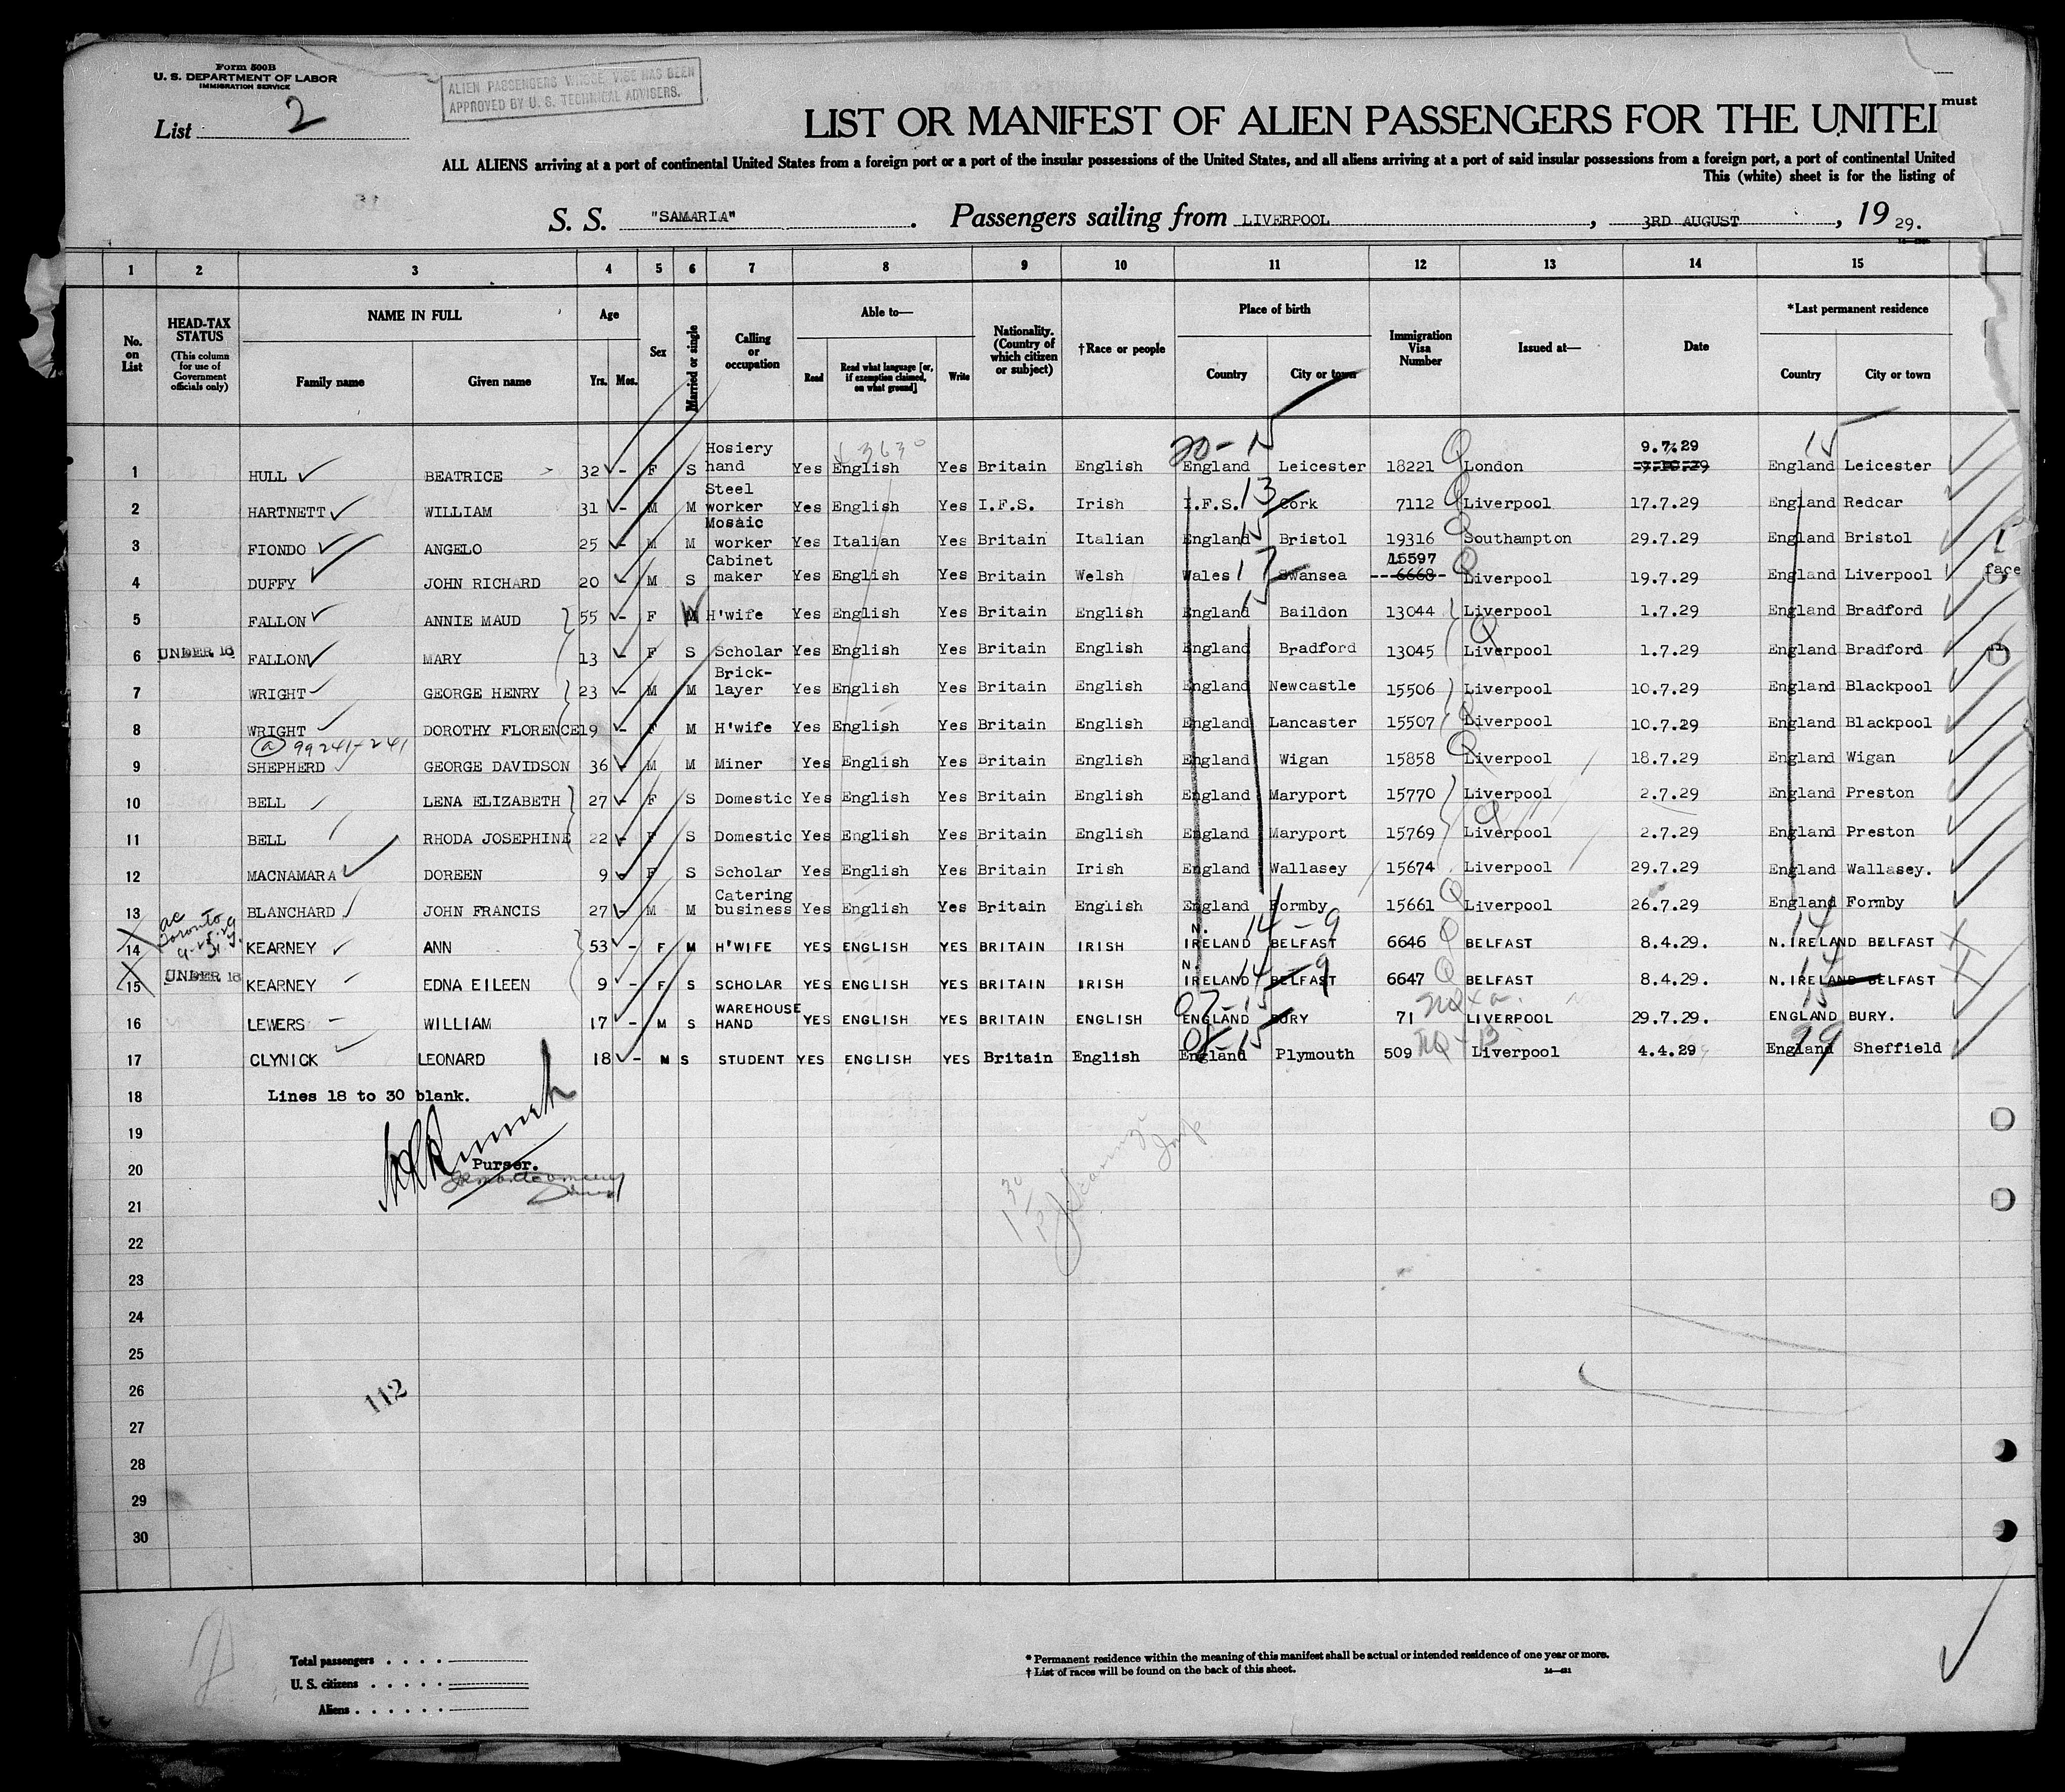 Form 500B
U. S. DEPARTMENT OF LABOR
IMMIGRATION SERVICE
ALIEN PASSENGERS WHOSE VISE HAS BEEN
APPROVED BY U. S. TECHNICAL ADVISERS.
List 2
must
LIST OR MANIFEST OF ALIEN PASSENGERS FOR THE UNITEI
ALL ALIENS arriving at a port of continental United States from a foreign port or a port of the insular possessions of the United States, and all aliens arriving at a port of said insular possessions from a foreign port, a port of continental United
This (white) sheet is for the listing of
S. S. "SAMARIA". Passengers sailing from LIVERPOOL, 3RD AUGUST, 19 29.
1 2 3 4 5 6 7 8 9 10 11 12 13 14 15
No. on List
HEAD-TAX STATUS (This column for use of Government officials only)
NAME IN FULL Family name Given name
Age Yrs. Mos.
Sex
Married or single
Calling or occupation
Able to— Read Read what language [or, if exemption claimed, on what ground] Write
Nationality. (Country of which citizen or subject)
†Race or people
Place of birth Country City or town
Immigration Visa Number
Issued at—
Date
*Last permanent residence Country City or town
3630 20-15 15
1 HULL BEATRICE 32 - F S Hosiery hand Yes English Yes Britain English England Leicester 18221 London 9.7.29 England Leicester
2 HARTNETT WILLIAM 31 - M M Steel worker Yes English Yes I.F.S. Irish I.F.S. 13 Cork 7112 Liverpool 17.7.29 England Redcar
3 FIONDO ANGELO 25 - M M Mosaic worker Yes Italian Yes Britain Italian England 15 Bristol 19316 Southampton 29.7.29 England Bristol
4 DUFFY JOHN RICHARD 20 - M S Cabinet maker Yes English Yes Britain Welsh Wales 17 Swansea 15597 6668 Liverpool 19.7.29 England Liverpool face
5 FALLON ANNIE MAUD 55 - F W H'wife Yes English Yes Britain English England 15 Baildon 13044 Liverpool 1.7.29 England Bradford
6 UNDER 16 FALLON MARY 13 - F S Scholar Yes English Yes Britain English England Bradford 13045 Liverpool 1.7.29 England Bradford
7 WRIGHT GEORGE HENRY 23 - M M Brick-layer Yes English Yes Britain English England Newcastle 15506 Liverpool 10.7.29 England Blackpool
8 WRIGHT DOROTHY FLORENCE 19 - F M H'wife Yes English Yes Britain English England Lancaster 15507 Liverpool 10.7.29 England Blackpool
(a) 99241-241
9 SHEPHERD GEORGE DAVIDSON 36 - M M Miner Yes English Yes Britain English England Wigan 15858 Liverpool 18.7.29 England Wigan
10 BELL LENA ELIZABETH 27 - F S Domestic Yes English Yes Britain English England Maryport 15770 Liverpool 2.7.29 England Preston
11 BELL RHODA JOSEPHINE 22 - F S Domestic Yes English Yes Britain English England Maryport 15769 Liverpool 2.7.29 England Preston
12 MACNAMARA DOREEN 9 - F S Scholar Yes English Yes Britain Irish England Wallasey 15674 Liverpool 29.7.29 England Wallasey.
13 BLANCHARD JOHN FRANCIS 27 - M M Catering business Yes English Yes Britain English England Formby 15661 Liverpool 26.7.29 England Formby
14 KEARNEY ANN 53 - F M H'WIFE YES ENGLISH YES BRITAIN IRISH N. IRELAND 14-9 BELFAST 6646 BELFAST 8.4.29. 14 N.IRELAND BELFAST
15 UNDER 16 KEARNEY EDNA EILEEN 9 - F S SCHOLAR YES ENGLISH YES BRITAIN IRISH N. IRELAND 14-9 BELFAST 6647 BELFAST 8.4.29. 14 N.IRELAND BELFAST
16 LEWERS WILLIAM 17 - M S WAREHOUSE HAND YES ENGLISH YES BRITAIN ENGLISH ENGLAND BURY 71 LIVERPOOL 29.7.29. 15 ENGLAND BURY.
17 CLYNICK LEONARD 18 - M S STUDENT YES ENGLISH YES Britain English England Plymouth 509 Liverpool 4.4.29 England Sheffield
18 Lines 18 to 30 blank.
19
20 Purser.
21
22
23
24
25
26
112
27
28
29
30
Total passengers
U. S. citizens
Aliens
* Permanent residence within the meaning of this manifest shall be actual or intended residence of one year or more.
† List of races will be found on the back of this sheet.